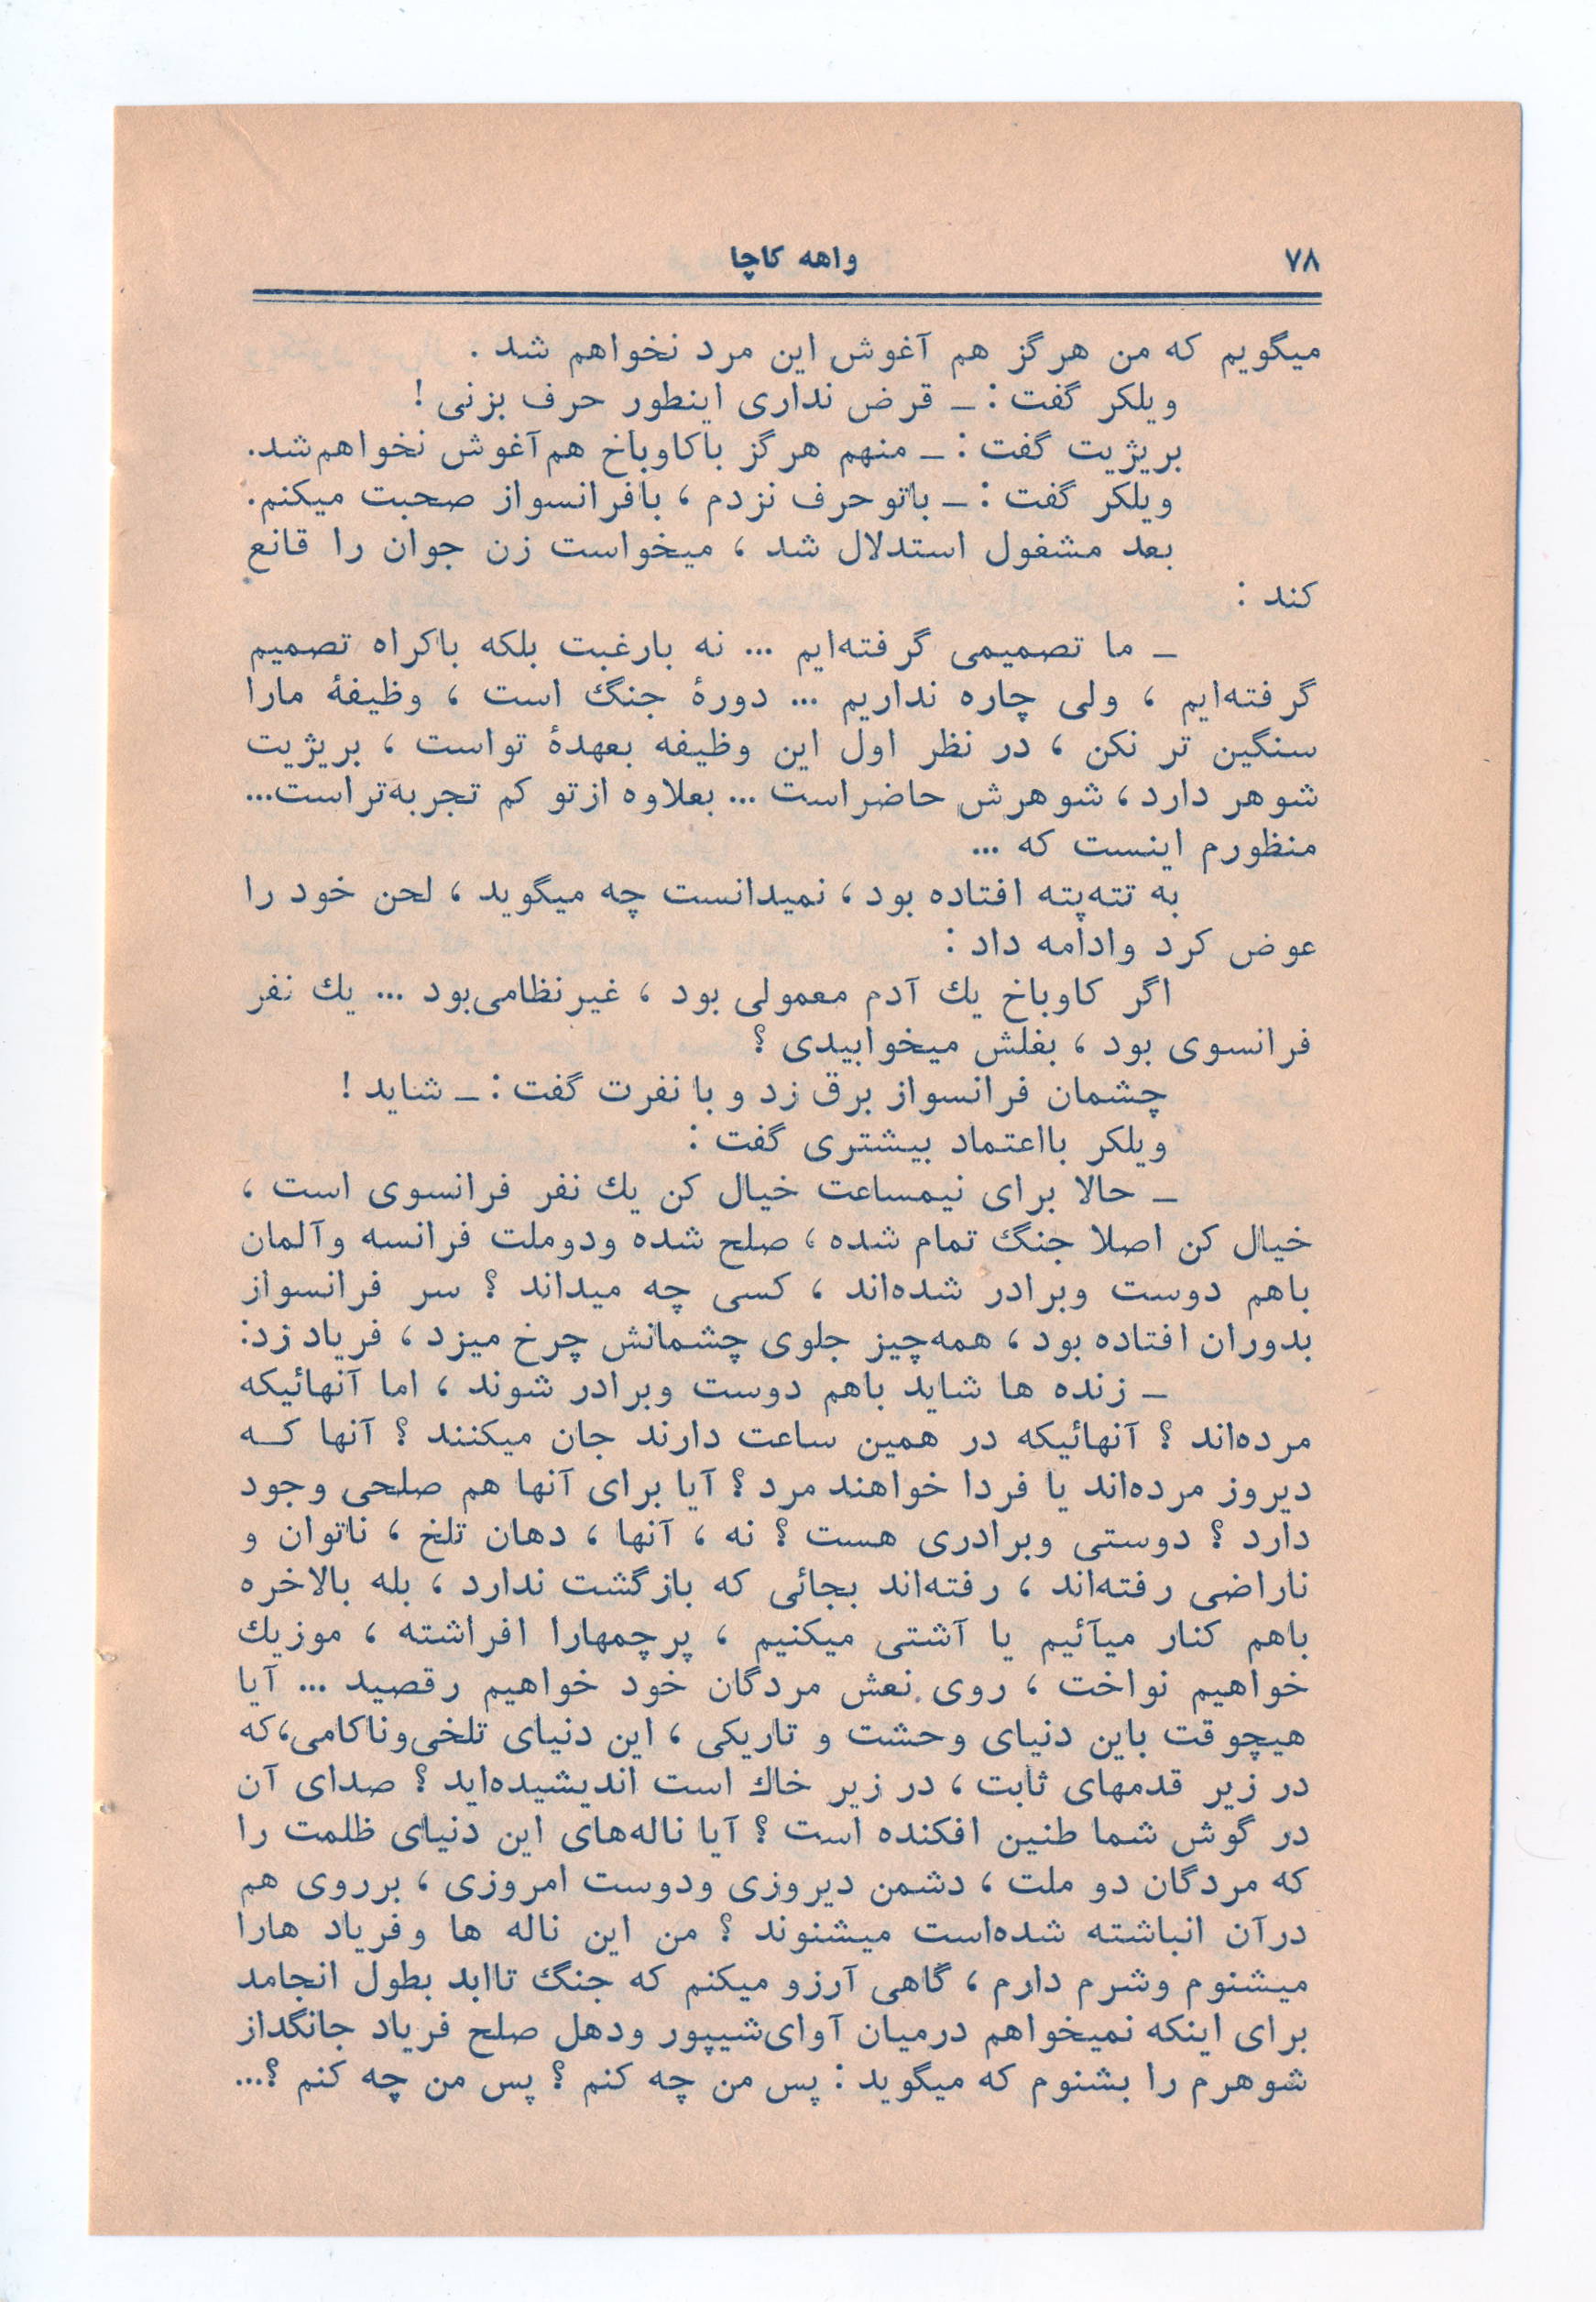 ۷۸
واهه کاچا
میگویم که من هرگز هم آغوش این مرد نخواهم شد .
ویلکر گفت : ــ قرض نداری اینطور حرف بزنی !
بریژیت گفت : ــ منهم هرگز باکاوباخ هم‌آغوش نخواهم‌شد.
ویلکر گفت : ــ باتو حرف نزدم ، بافرانسواز صحبت میکنم.
بعد مشغول استدلال شد ، میخواست زن جوان را قانع
کند :
ــ ما تصمیمی گرفته‌ایم ... نه بارغبت بلکه باکراه تصمیم
گرفته‌ایم ، ولی چاره نداریم ... دورهٔ جنگ است ، وظیفهٔ مارا
سنگین تر نکن ، در نظر اول این وظیفه بعهدهٔ تواست ، بریژیت
شوهر دارد ، شوهرش حاضراست ... بعلاوه ازتو کم تجربه‌تراست...
منظورم اینست که ...
به تته‌پته افتاده بود ، نمیدانست چه میگوید ، لحن خود را
عوض کرد وادامه داد :
اگر کاوباخ یك آدم معمولی بود ، غیرنظامی‌بود ... یك نفر
فرانسوی بود ، بغلش میخوابیدی ؟
چشمان فرانسواز برق زد و با نفرت گفت : ــ شاید !
ویلکر بااعتماد بیشتری گفت :
ــ حالا برای نیمساعت خیال کن یك نفر فرانسوی است ،
خیال کن اصلا جنگ تمام شده ، صلح شده ودوملت فرانسه وآلمان
باهم دوست وبرادر شده‌اند ، کسی چه میداند ؟ سر فرانسواز
بدوران افتاده بود ، همه‌چیز جلوی چشمانش چرخ میزد ، فریاد زد:
ــ زنده ها شاید باهم دوست وبرادر شوند ، اما آنهائیکه
مرده‌اند ؟ آنهائیکه در همین ساعت دارند جان میکنند ؟ آنها کـه
دیروز مرده‌اند یا فردا خواهند مرد ؟ آیا برای آنها هم صلحی وجود
دارد ؟ دوستی وبرادری هست ؟ نه ، آنها ، دهان تلخ ، ناتوان و
ناراضی رفته‌اند ، رفته‌اند بجائی که بازگشت ندارد ، بله بالاخره
باهم کنار میآئیم یا آشتی میکنیم ، پرچمهارا افراشته ، موزیك
خواهیم نواخت ، روی نعش مردگان خود خواهیم رقصید ... آیا
هیچوقت باین دنیای وحشت و تاریکی ، این دنیای تلخی‌وناکامی،که
در زیر قدمهای ثابت ، در زیر خاك است اندیشیده‌اید ؟ صدای آن
در گوش شما طنین افکنده است ؟ آیا ناله‌های این دنیای ظلمت را
که مردگان دو ملت ، دشمن دیروزی ودوست امروزی ، برروی هم
درآن انباشته شده‌است میشنوند ؟ من این ناله ها وفریاد هارا
میشنوم وشرم دارم ، گاهی آرزو میکنم که جنگ تاابد بطول انجامد
برای اینکه نمیخواهم درمیان آوای‌شیپور ودهل صلح فریاد جانگداز
شوهرم را بشنوم که میگوید : پس من چه کنم ؟ پس من چه کنم ؟...